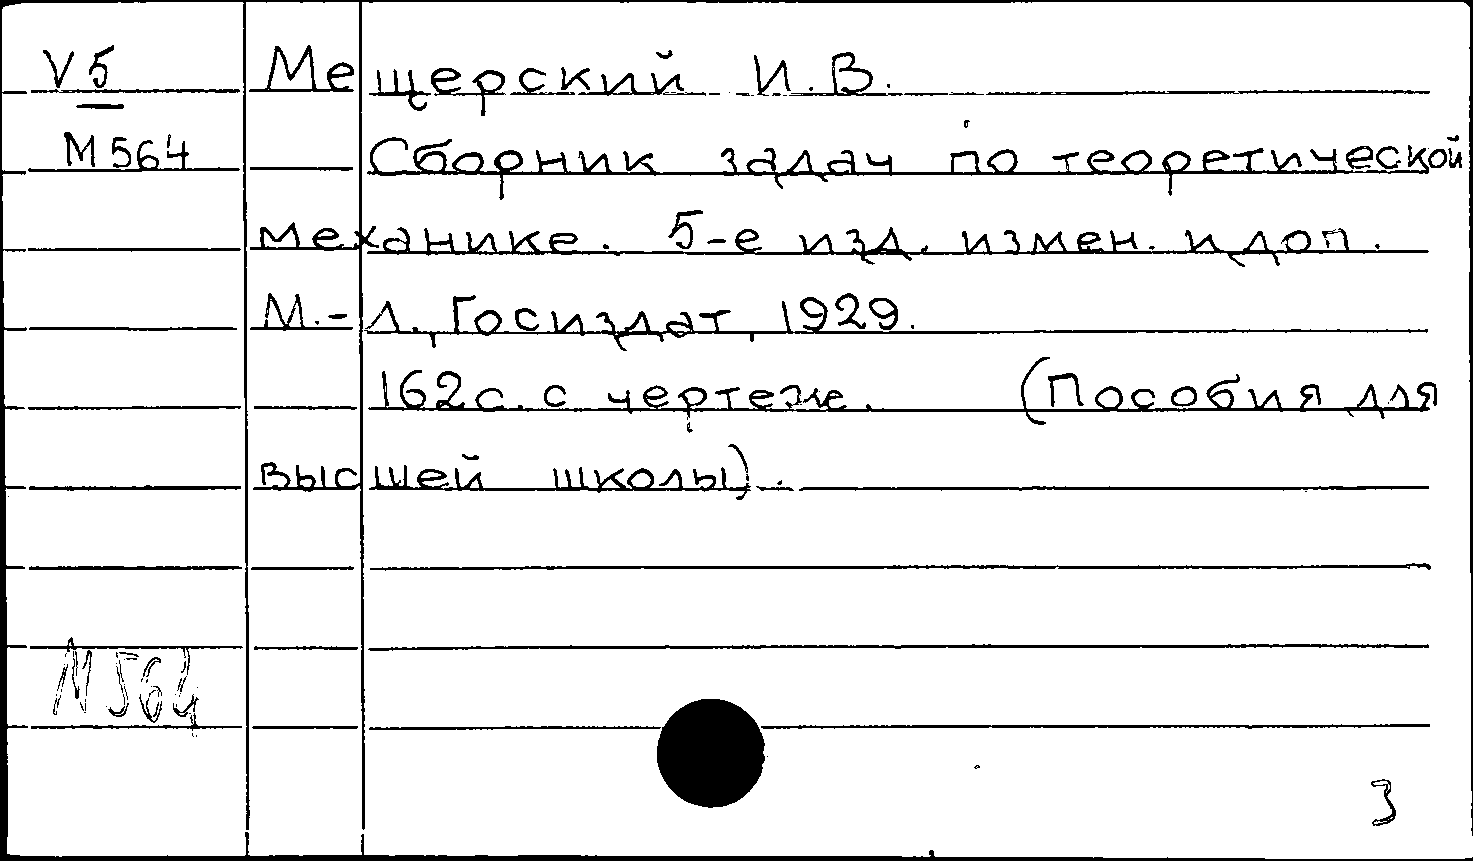 V5 Мещерский И.В.
М564 Сборник задач по теоретической
механике. 5-е изд. измен. и доп.
М.-Л., Госиздат, 1929.
162с. с чертеж. (Пособия для
высшей школы).
М564
3